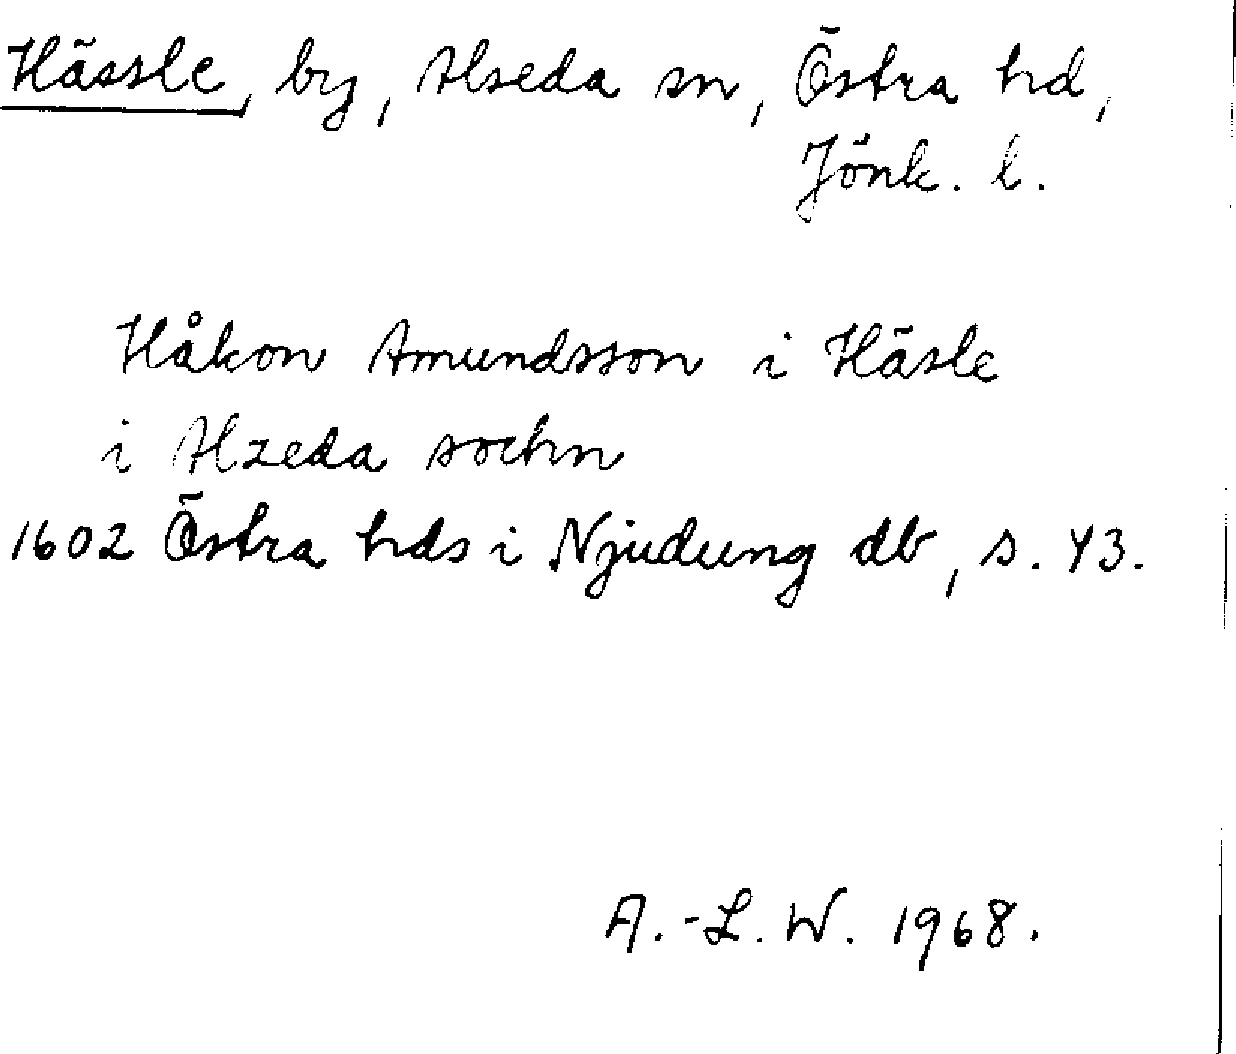 Hässle, by, Alseda sn, Östra hd,
Jönk. l.
Håkon Amundsson i Häsle
i Alzeda sochn
1602 Östra hds i Njudung db, s. 43.
A.-L. W. 1968.